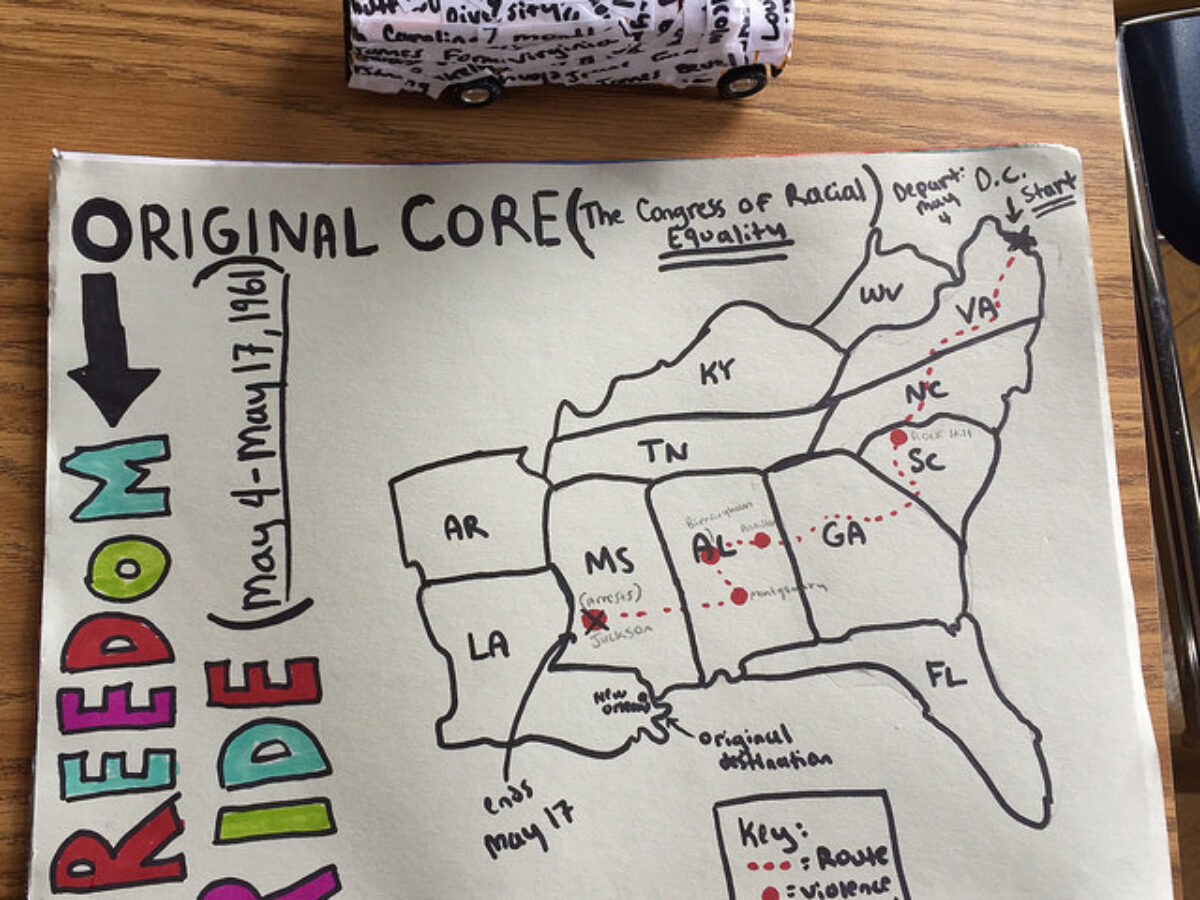 Diversity
Carolina 7 months
James Form Virginia
James
ORIGINAL CORE (The Congress of Racial)
Equality
Depart: D.C.
May
4
Start
FREEDOM
RIDE
(May 4-May 17, 1961)
WV
VA
KY
NC
TN
Rock Hill
SC
AR
Birmingham
AL
GA
MS
(arrests)
Montgomery
Jackson
LA
FL
New
Orleans
original
destination
ends
May 17
Key:
= Route
= Violence